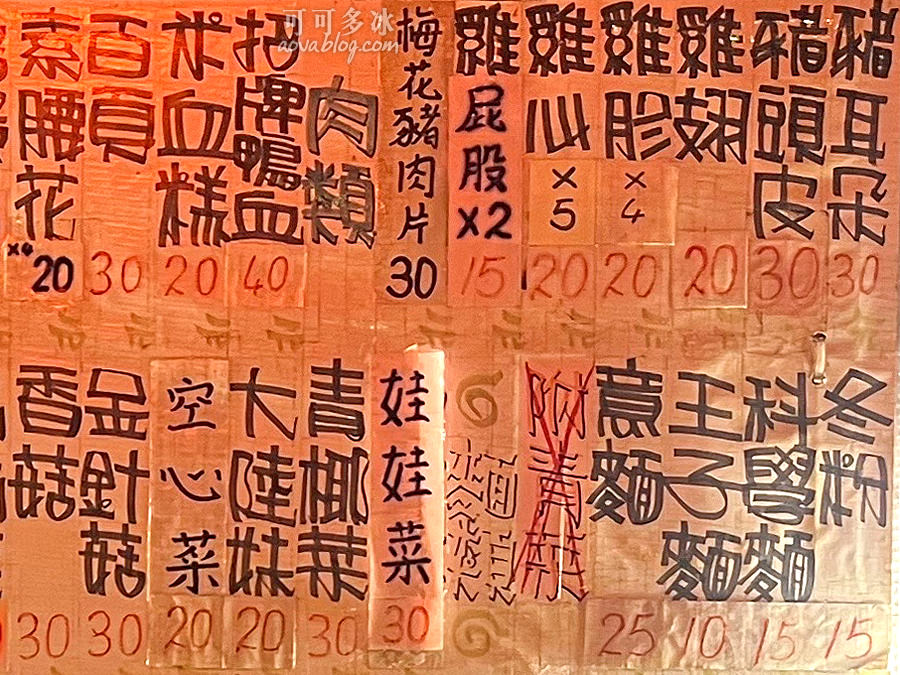 可可多冰
aovablog.com
豬耳朵 30
豬頭皮 30
雞翅 20
雞胗 ×4 20
雞心 ×5 20
雞屁股 X2 15
梅花豬肉片 30
肉類
招牌鴨血 40
米血糕 20
百頁 30
素腰花 ×4 20
冬粉 15
科學麵 15
王子麵 10
意麵 25
娃娃菜 30
青椰菜 30
大陸妹 20
空心菜 20
金針菇 30
香菇 30